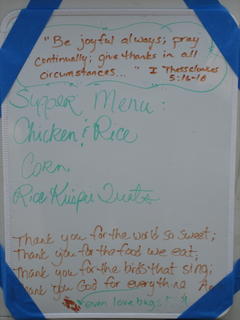 "Be joyful always; pray
continually; give thanks in all
circumstances..." I Thessalonians
5:16-18
Supper Menu:
Chicken & Rice
Corn
Rice Krispie Treats
Thank you for the world so sweet;
Thank you for the food we eat;
Thank you for the birds that sing;
Thank you God for everything
even lovebugs!